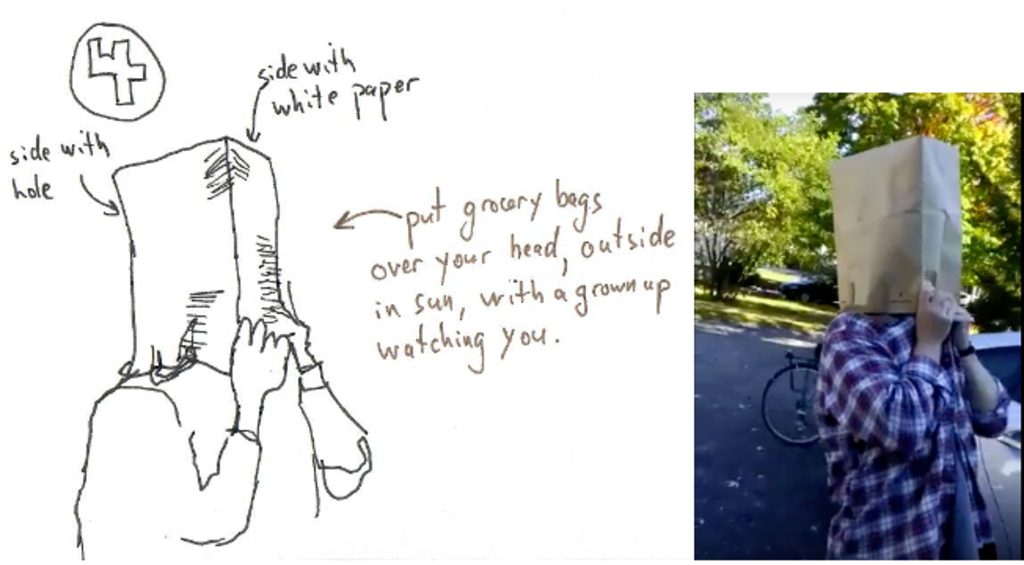 4
side with
white paper
side with
hole
put grocery bags
over your head, outside
in sun, with a grownup
watching you.